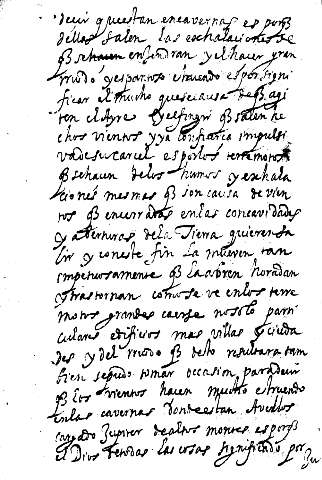 decir q̃ estan en cavernas es porq̃
dellas salen las exhalaciones de
q̃ se hacen engendran y el hacer gran
rruido y espantoso estruendo es por signi
ficar el mucho que se causa de q̃ agi
ten el Ayre el fingir q̃ salen he
chos vientos y ya con fuerça impulsi
va de su carcel es por los terremotos
q̃ se hacen de los humos y exhala
ciones mesmas q̃ son causa de vien
tos q̃ encerrados en las concavidades
y aberturas de la Tierra quieren sa
lir y con este fin la mueven tan
impetuosamente q̃ la abren horadan
y trastornan como se ve en los terre
motos grandes caerse no solo parti
culares edificios mas villas y ciuda
des y del rruido q̃ desto resultara tam
bien se pudo tomar occasion para decir
q̃ los vientos hacen mucho estruendo
en las cavernas donde estan Avellos
cargado Jupiter de altos montes es porq̃
el Dios de todas las cosas significado por
Ju